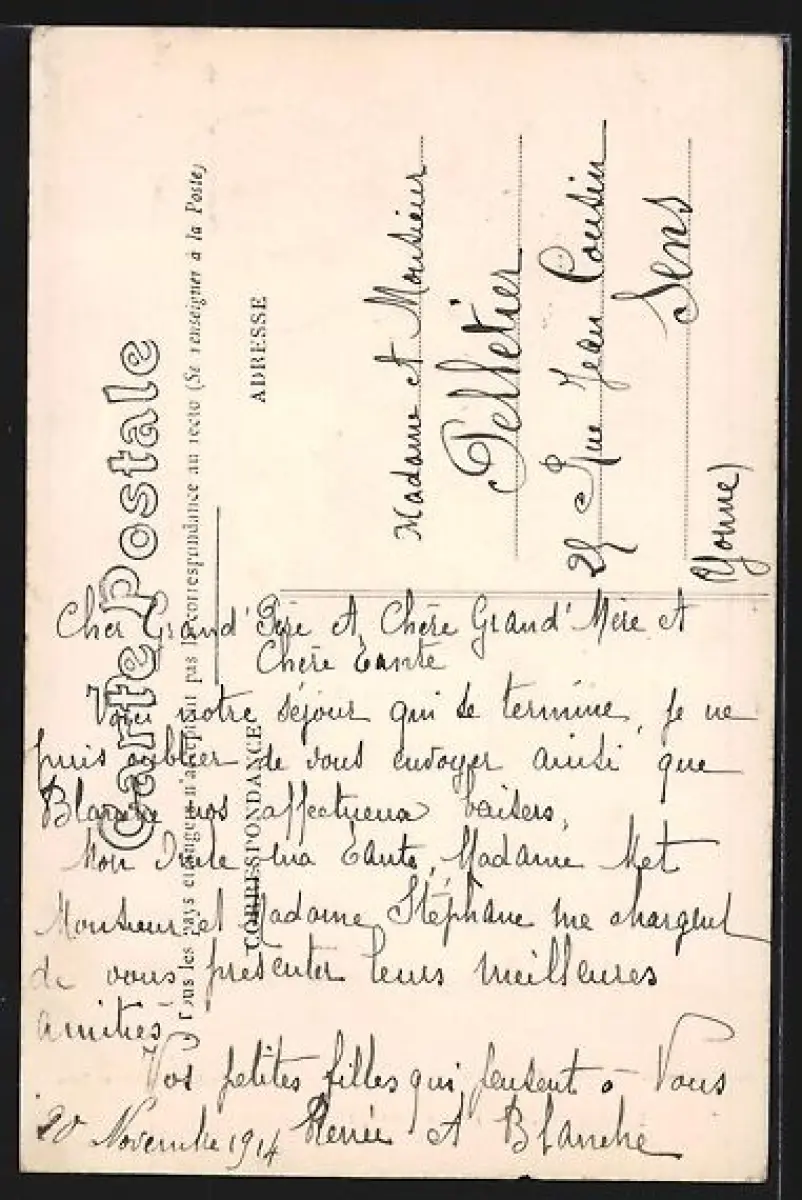 Carte Postale
Tous les pays étrangers n'acceptent pas la correspondance au recto (Se renseigner à la Poste)
CORRESPONDANCE
ADRESSE
Madame et Monsieur
Pelletier
25 Rue Jean Cousin
Sens
(Yonne)
Cher Grand'Père et Chère Grand'Mère et
Chère Tante
Voici notre séjour qui se termine, je ne
puis oublier de vous envoyer ainsi que
Blanche nos affectueux baisers,
Mon Oncle ma Tante, Madame Met
Monsieur et Madame Stéphane me chargent
de vous présenter leurs meilleures
amitiés
Vos petites filles qui pensent à Vous
Renée et Blanche
20 Novembre 1914